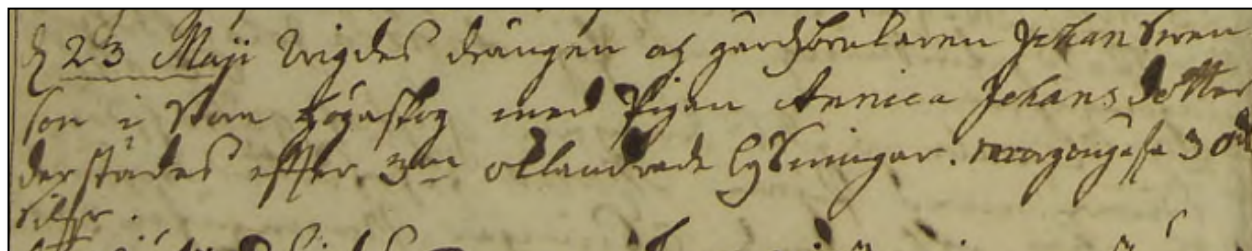 d 23 Maji wigdes drängen och gårdsbrukaren Johan Swen
son i Stora Högaskog med Pigan Annica Johans Dotter
derstädes effter 3ne oklandrade lysningar. morgongåfva 30
silfr.